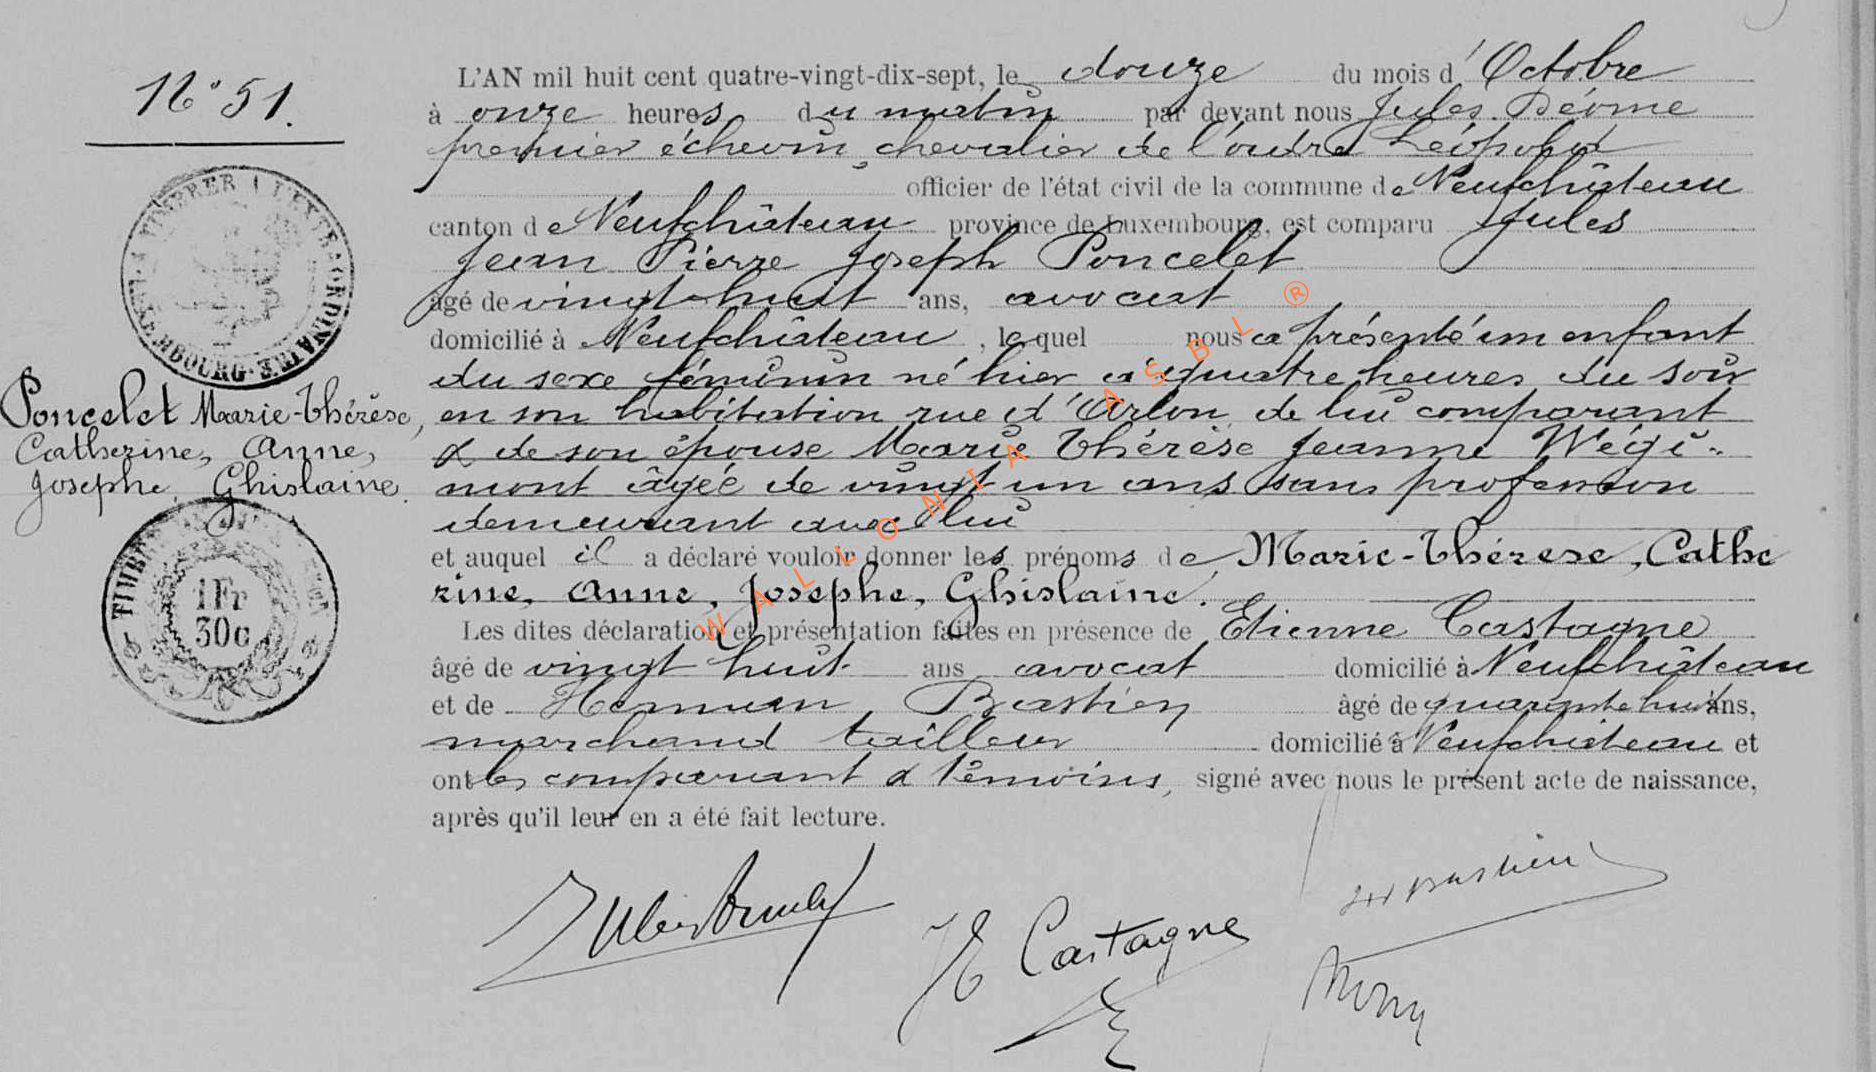 N° 51.
L'AN mil huit cent quatre-vingt-dix-sept, le douze du mois d'Octobre
à onze heures du matin par devant nous Jules Déome
premier échevin, chevalier de l'ordre Léopold
officier de l'état civil de la commune de Neufchâteau
canton de Neufchâteau province de Luxembourg, est comparu Jules
Jean Pierre Joseph Poncelet
âgé de vingt-huit ans, avocat
domicilié à Neufchâteau, lequel nous a présenté un enfant
du sexe féminin né hier à quatre heures du soir
en son habitation rue d'Arlon, de lui comparant
& de son épouse Marie Thérèse Jeanne Wégi-
mont âgée de vingt un ans sans profession
demeurant avec lui
et auquel il a déclaré vouloir donner les prénoms de Marie-Thérese, Cathe
rine, Anne, Josephe, Ghislaine.
Les dites déclaration et présentation faites en présence de Etienne Castagne
âgé de vingt huit ans avocat domicilié à Neufchâteau
et de Herman Bastien âgé de quarante huit ans,
marchand tailleur domicilié à Neufchâteau et
ont les comparant & témoins, signé avec nous le présent acte de naissance,
après qu'il leur en a été fait lecture.
Poncelet Marie-Thérèse,
Catherine, Anne,
Josephe, Ghislaine.
TIMBRER À L'EXTRAORDINAIRE
LUXEMBOURG
TIMBRE
1Fr
30c
WALLONIA ASBL ®
Castagne
Bastien